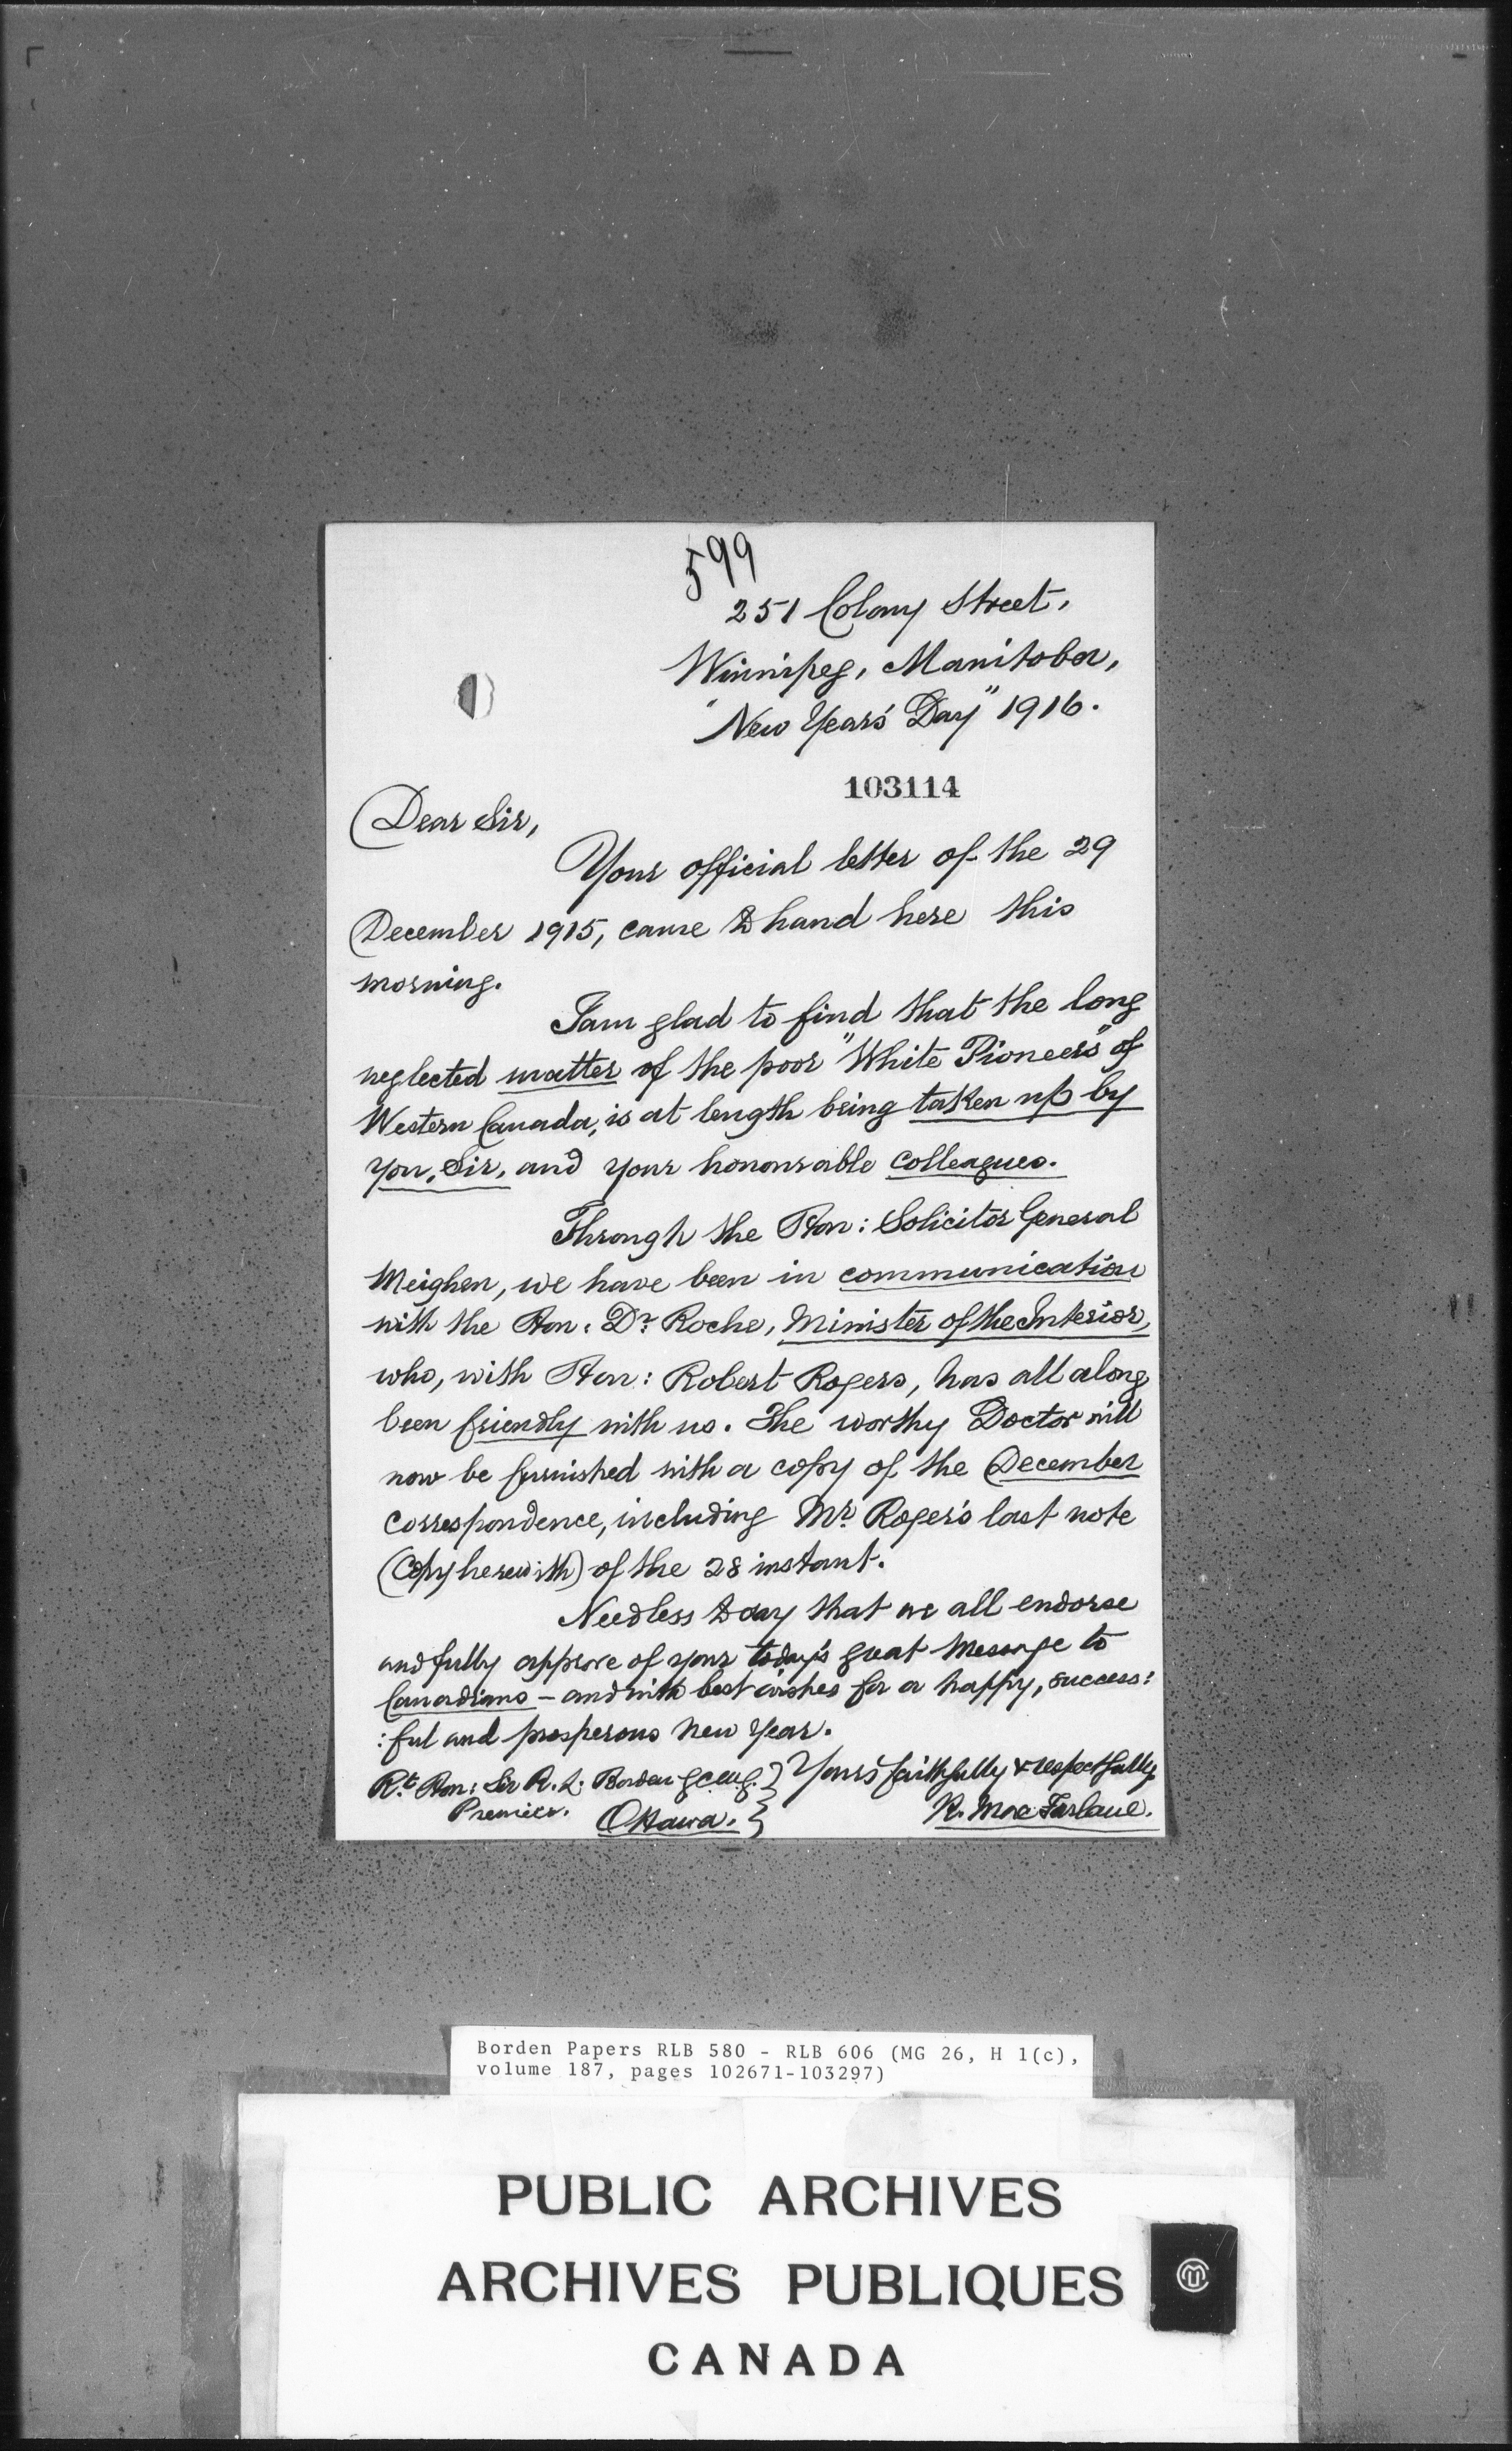 599
251 Colony Street,
Winnipeg, Manitoba,
"New Years' Day" 1916.
103114
Dear Sir,
Your official letter of the 29
December 1915, came to hand here this
morning.
I am glad to find that the long
neglected matter of the poor "White Pioneers" of
Western Canada, is at length being taken up by
you, Sir, and your honourable colleagues.
Through the Hon: Solicitor General
Meighen, we have been in communication
with the Hon: Dr. Roche, Minister of the Interior,
who, with Hon: Robert Rogers, has all along
been friendly with us. The worthy Doctor will
now be furnished with a copy of the December
correspondence, including Mr. Roger's last note
(Copy herewith) of the 28 instant.
Needless to say that we all endorse
and fully approve of your today's great Message to
Canadians – and with best wishes for a happy, success:
:ful and prosperous New Year.
Rt. Hon: Sir R. L. Borden G.C.M.G. } Yours faithfully & respectfully
Premier. Ottawa. } R. MacFarlane.
Borden Papers RLB 580 - RLB 606 (MG 26, H 1(c),
volume 187, pages 102671-103297)
PUBLIC ARCHIVES
ARCHIVES PUBLIQUES
CANADA